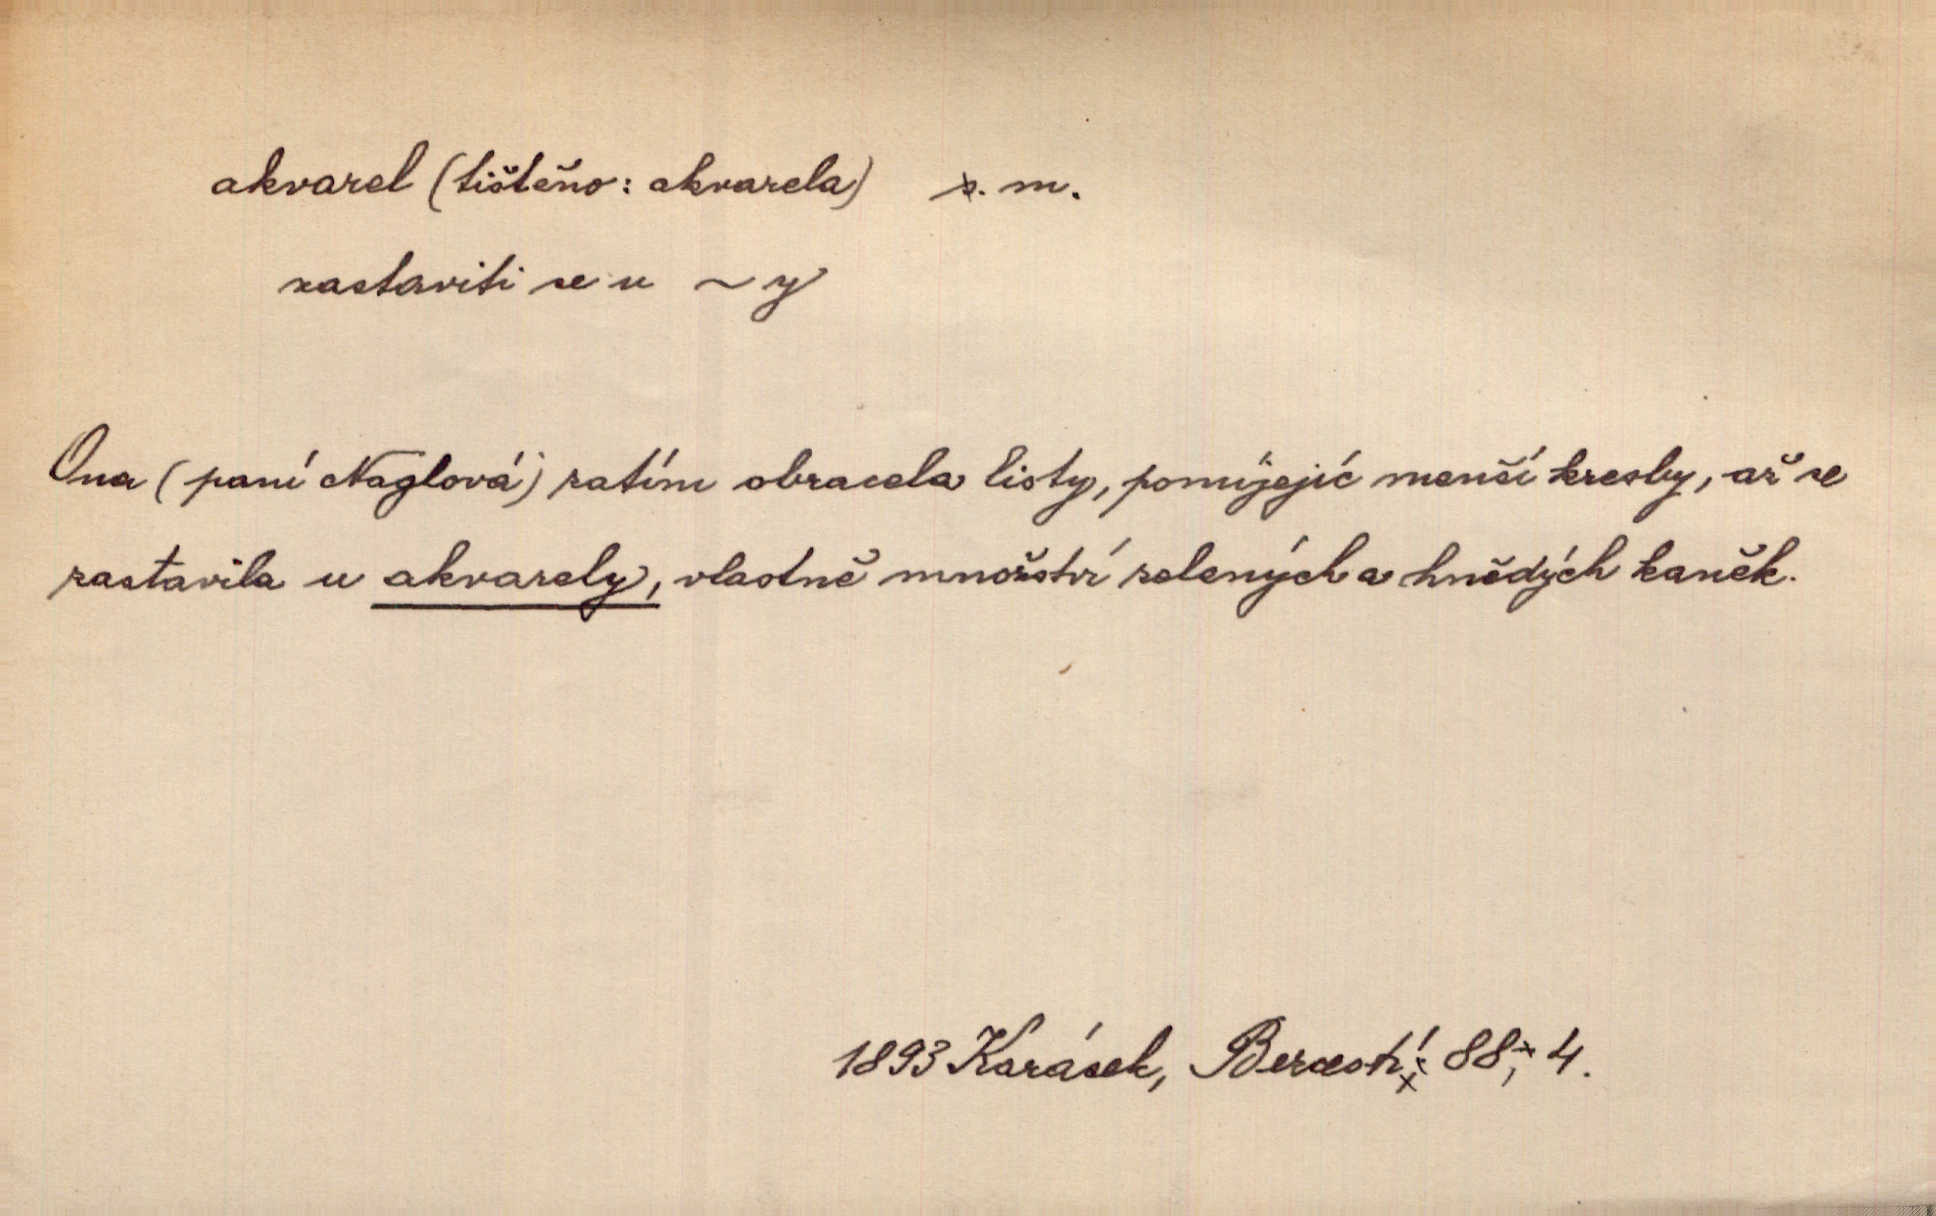 akvarel (tištěno: akvarela) s. m.
zastaviti se u ~y
Ona (paní Naglová) zatím obracela listy, pomíjejíc menší kresby, až se
zastavila u akvarely, vlastně množství zelených a hnědých kaněk.
1893 Karásek, Bezcestí: 88, 4.